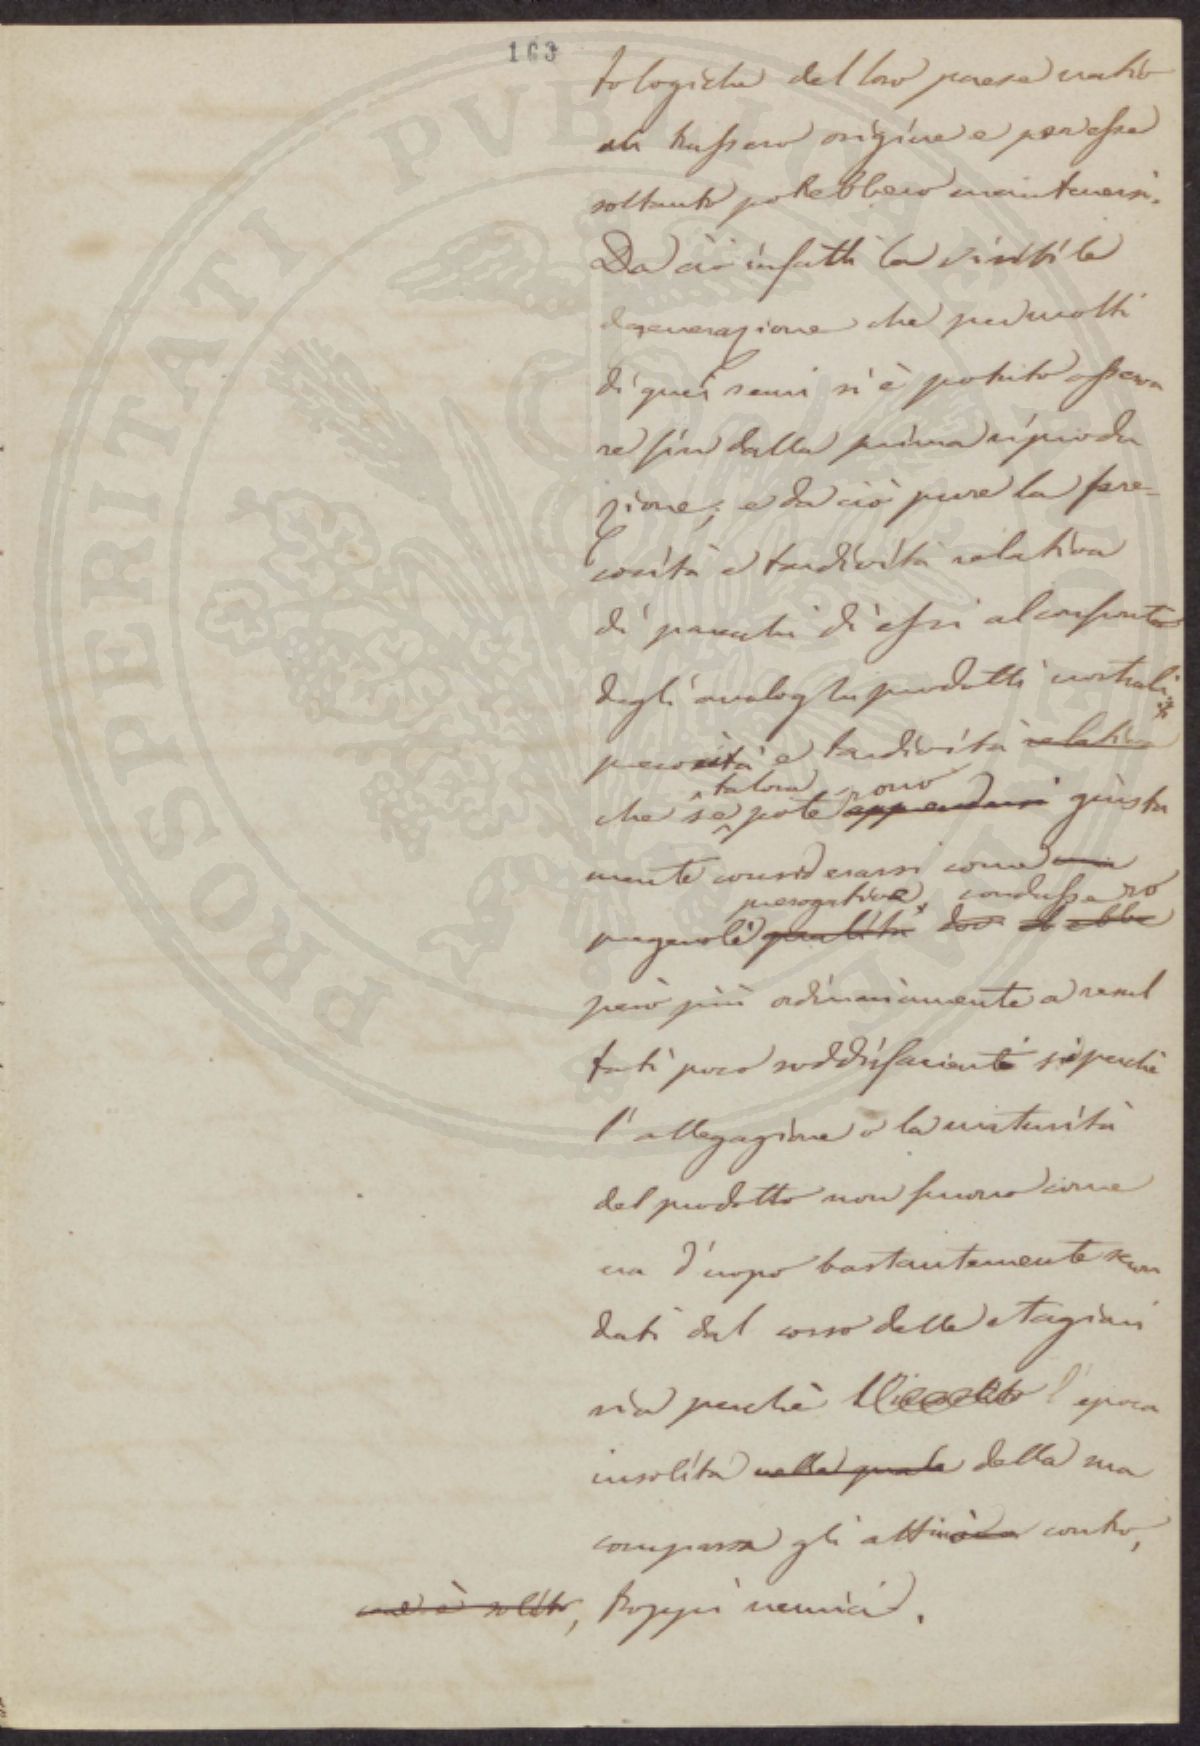 163
tologiche del loro paese natio
ali trassero origine e per esse
soltanto potrebbero mantenersi.
Da ciò infatti la visibile
degenerazione che per molti
di quei semi si è potuto osserva
re fin dalla prima riprodu
zione; e da ciò pure la pre-
cocità e tardività relativa
di parecchi di essi al confronto
degli analoghi prodotti nostrali;
precocità e tardività relativa
talora sono
che se pote apprendersi giusta
mente considerarsi come una
prerogative, condussero
pregevoli qualità dov ebbe
però più ordinariamente a resul
tati poco soddisfacienti sì perchè
l'allegagione o la maturità
del prodotto non furono come
era d'uopo bastantemente secon
dati dal corso delle stagioni
sia perchè l'epoca
insolita nella quale della sua
comparsa gli attirò contro,
come è solito, troppi nemici.
PROSPERITATI PVBLICAE